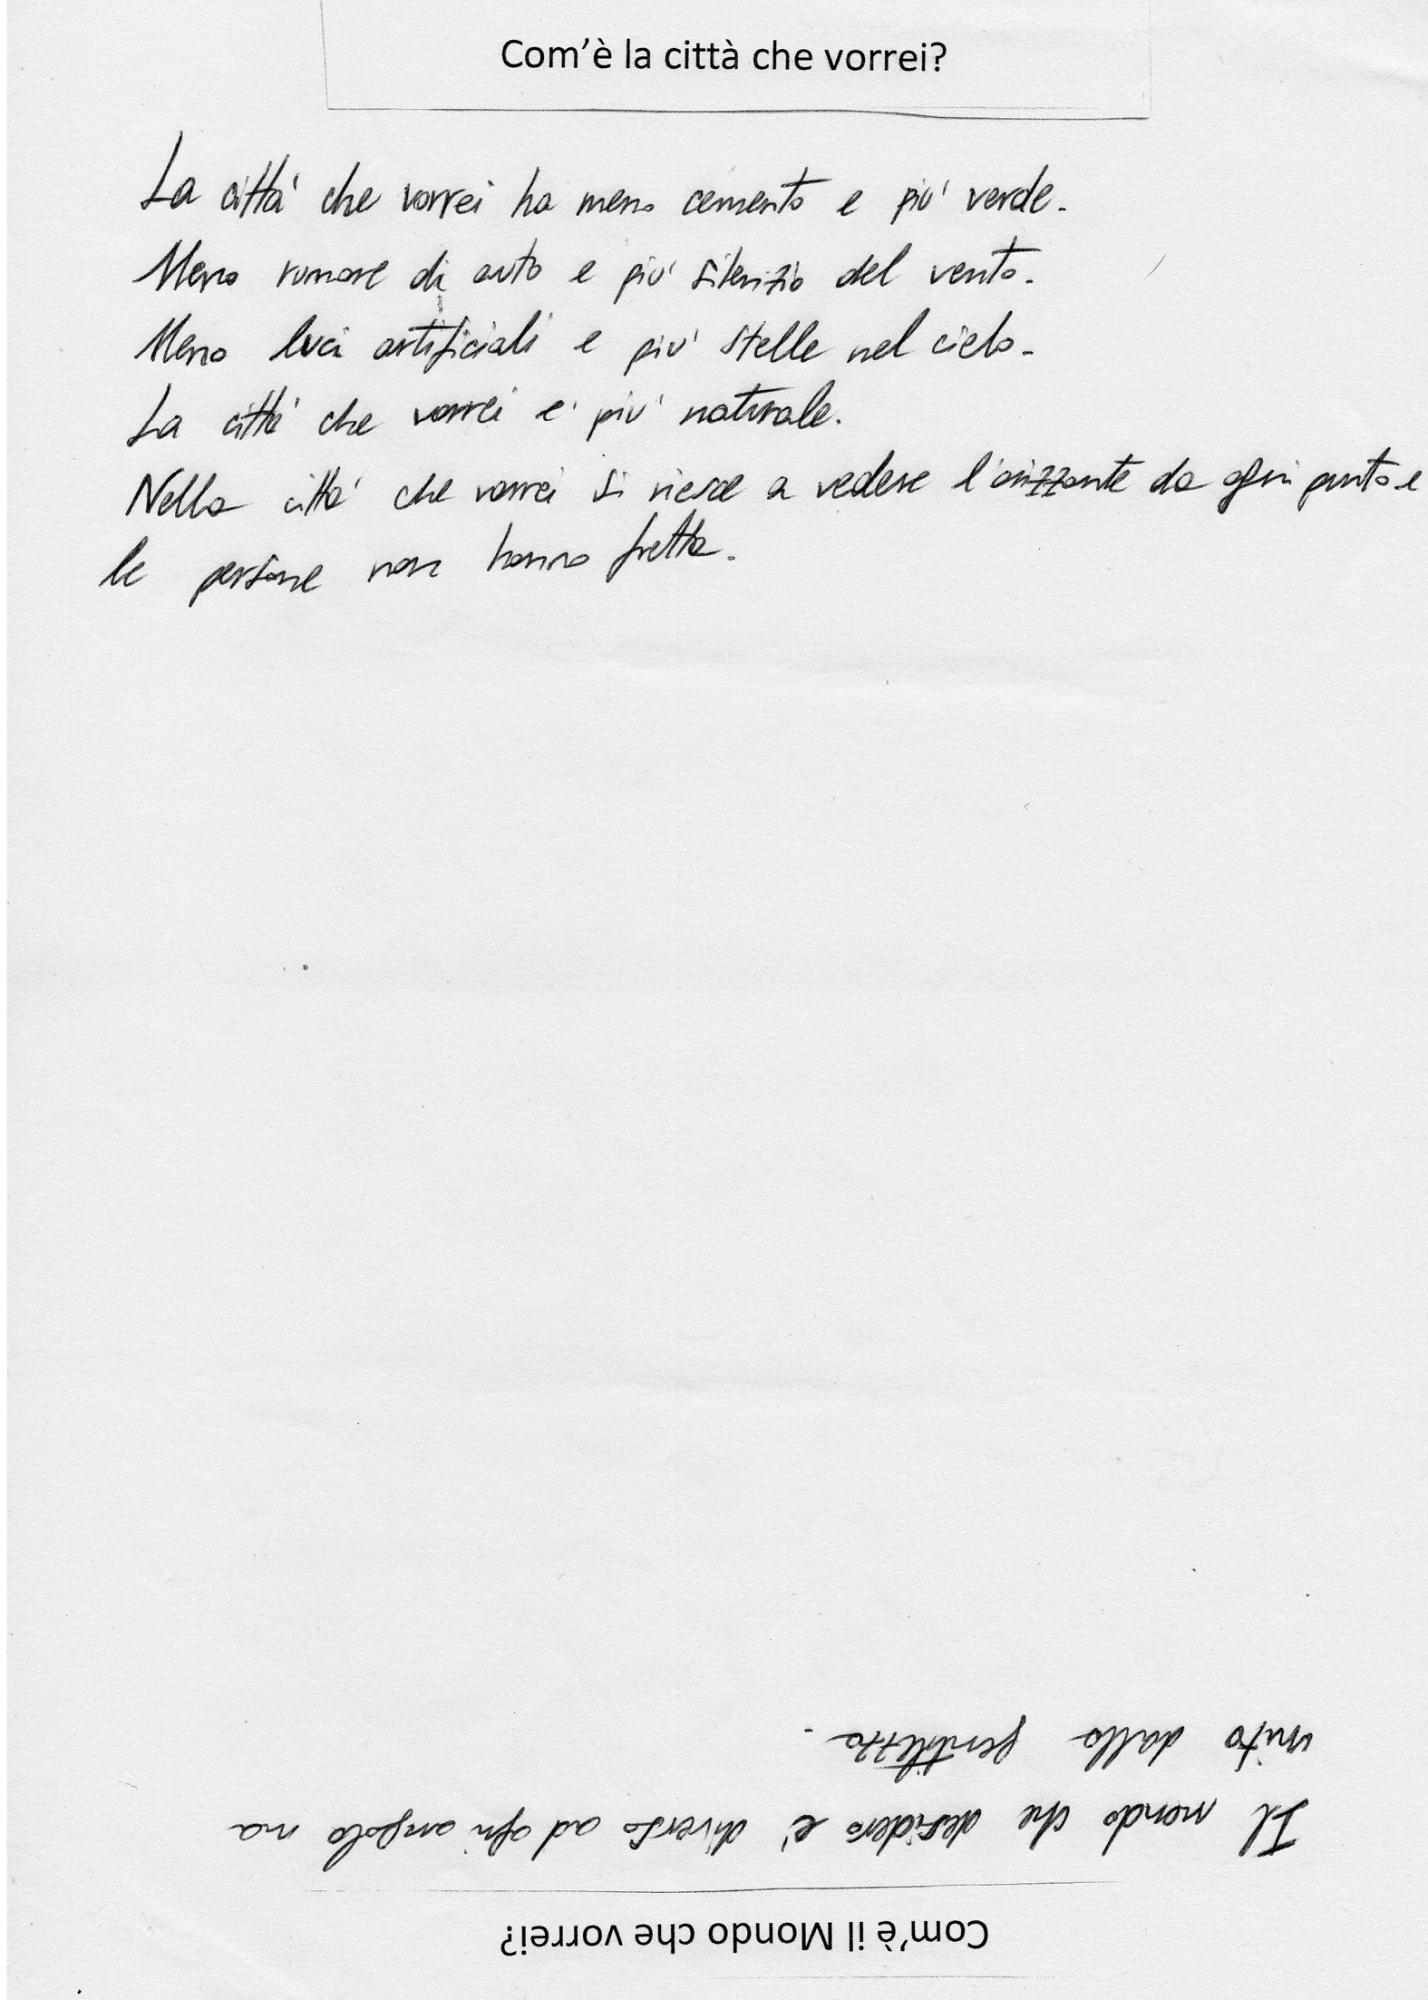 Com'è la città che vorrei?
La città che vorrei ha meno cemento e più verde.
Meno rumore di auto e più silenzio del vento.
Meno luci artificiali e più stelle nel cielo.
La città che vorrei è più naturale.
Nella città che vorrei si riesce a vedere l'orizzonte da ogni punto e
le persone non hanno fretta.
Com'è il Mondo che vorrei?
Il mondo che desidero è diverso ad ogni angolo ma
unito dalla gentilezza.